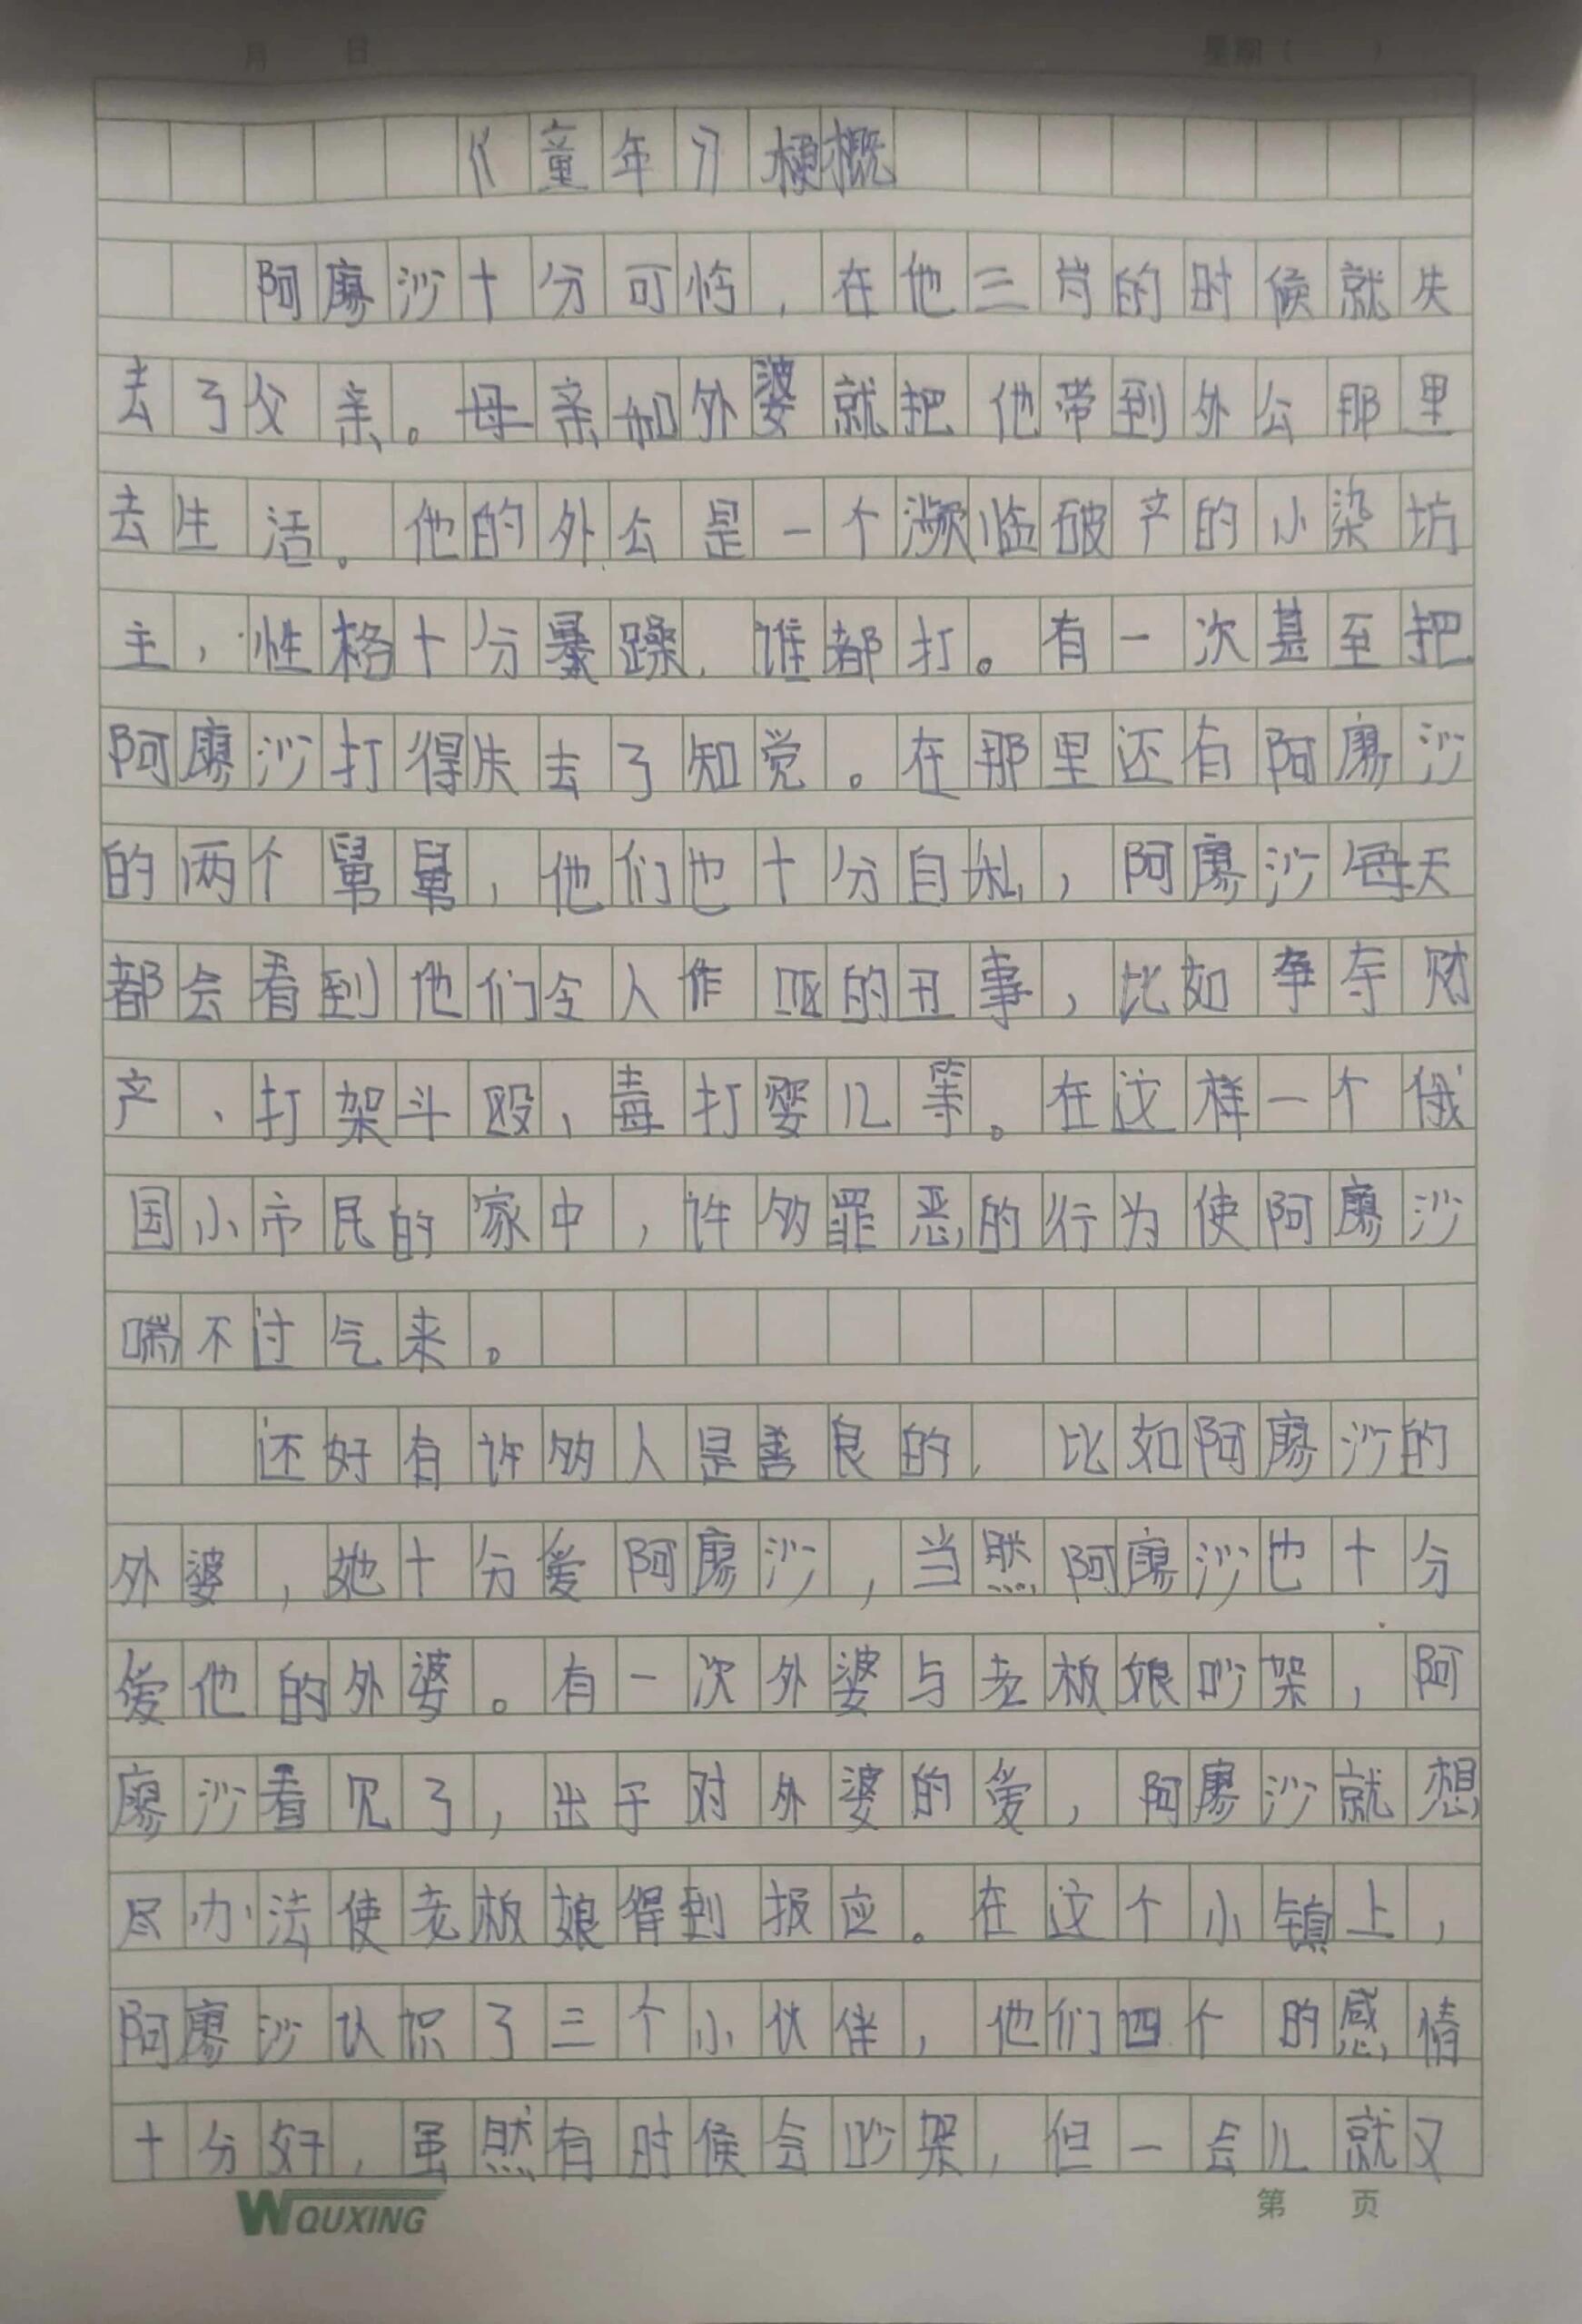 月 日 星期（ ）
《童年》梗概
阿廖沙十分可怜，在他三岁的时候就失
去了父亲。母亲和外婆就把他带到外公那里
去生活。他的外公是一个濒临破产的小染坊
主，性格十分暴躁，谁都打。有一次甚至把
阿廖沙打得失去了知觉。在那里还有阿廖沙
的两个舅舅，他们也十分自私，阿廖沙每天
都会看到他们令人作呕的丑事，比如争夺财
产、打架斗殴、毒打婴儿等。在这样一个俄
国小市民的家中，许多罪恶的行为使阿廖沙
喘不过气来。
还好有许多人是善良的，比如阿廖沙的
外婆，她十分爱阿廖沙，当然阿廖沙也十分
爱他的外婆。有一次外婆与老板娘吵架，阿
廖沙看见了，出于对外婆的爱，阿廖沙就想
尽办法使老板娘得到报应。在这个小镇上，
阿廖沙认识了三个小伙伴，他们四个的感情
十分好，虽然有时候会吵架，但一会儿就又
WOUXING 第 页